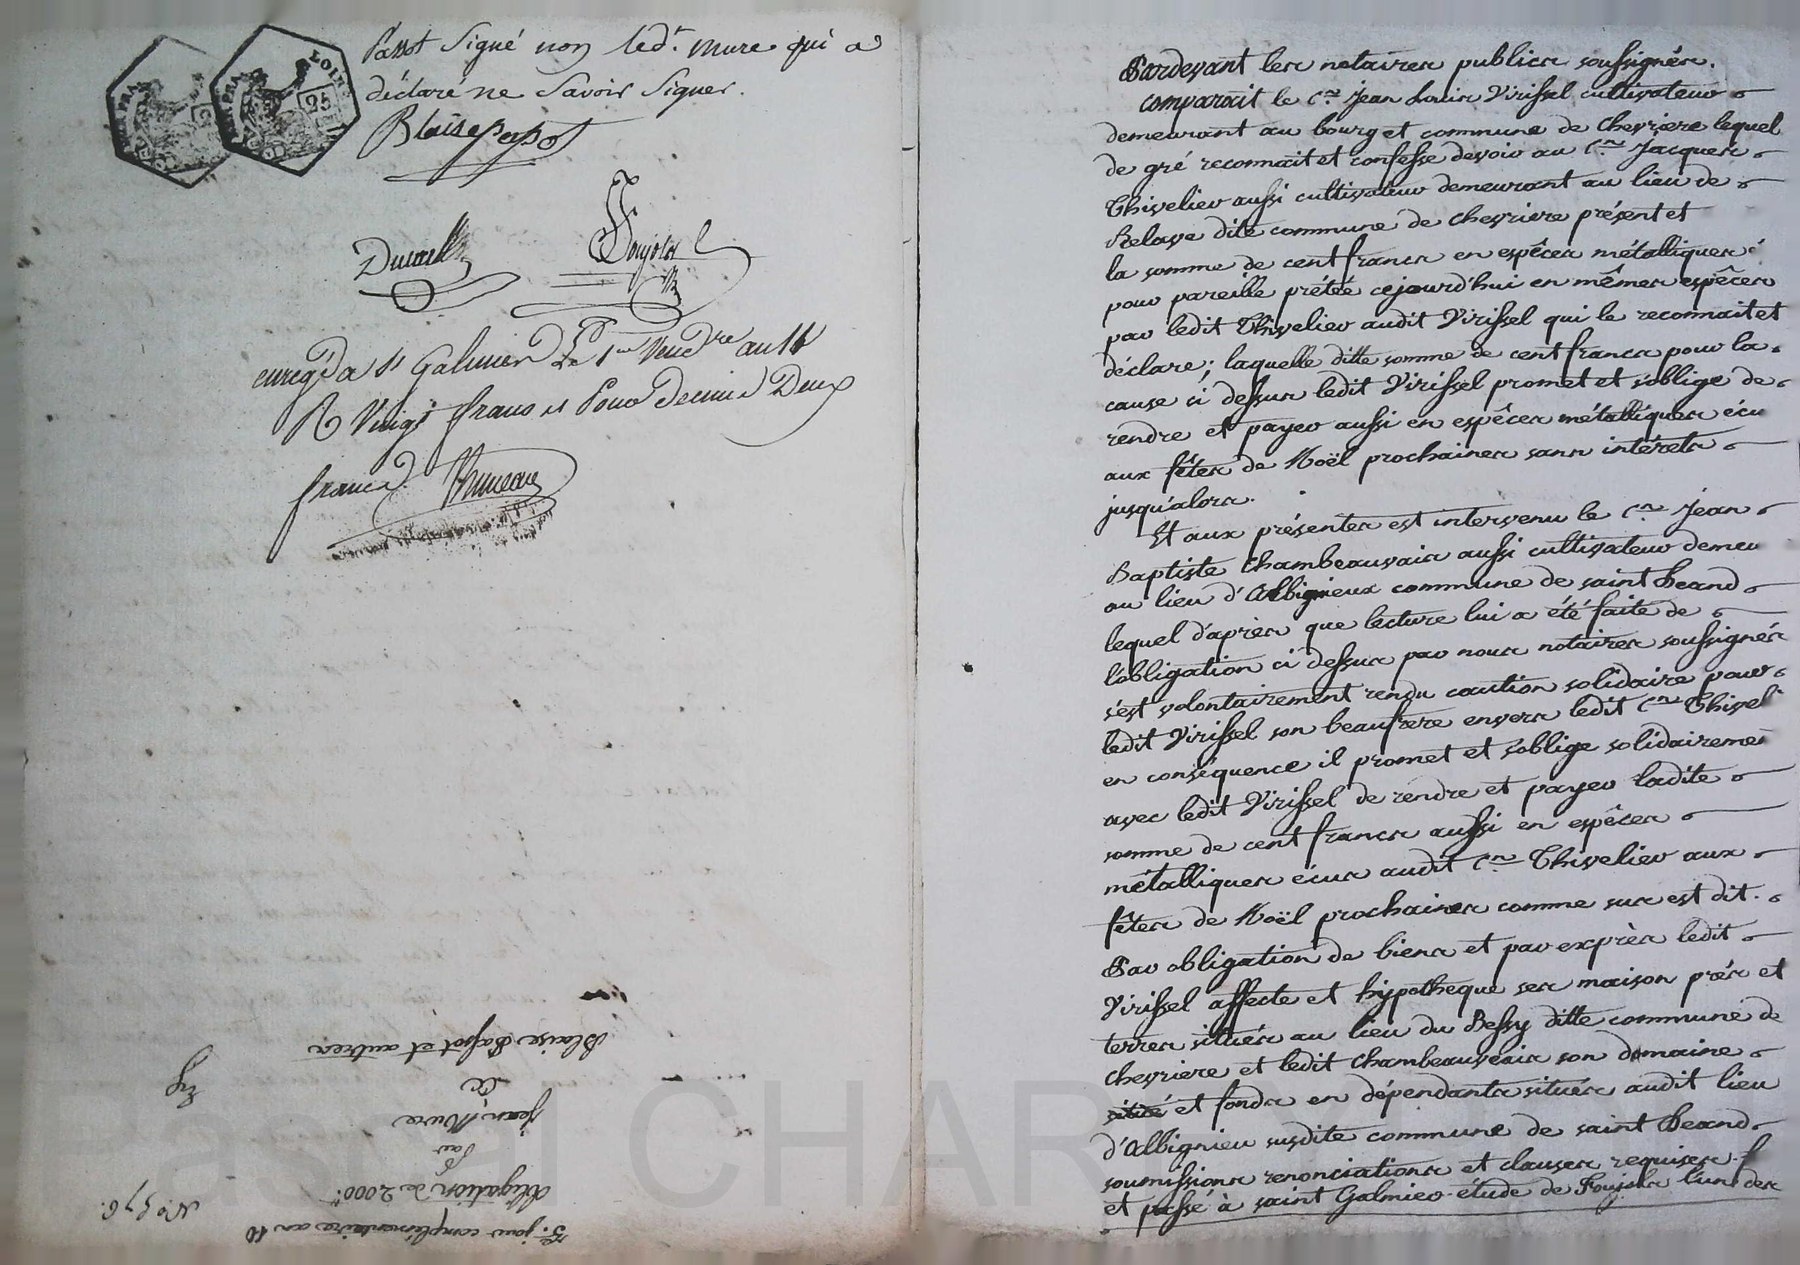 Passot Signé non led.t Mure qui a
déclaré ne Savoir Signer.
Blaise passot
enreg.é a S.t Galmier Le 1.er Vend.re an 11
R Vingt francs et Pour Decime Deux
francs.
Blaise Passot et autres
a
Jean Mure
Par
Obligation de 2000.f
5.e jour complémentaire an 10
N.o 576.
Pardevant les notaires publics soussignés.
comparait le C.en Jean Louis Virissel cultivateur
demeurant au bourg et commune de Chevriere lequel
de gré reconnait et confesse devoir au C.en Jacques
Thivelier aussi cultivateur demeurant au lieu de
Relave dite commune de chevriere présent et
la somme de cent francs en espêces métalliques
pour pareille prétée cejourd'hui en mêmes espêces
par ledit Thivelier audit Virissel qui le reconnait et
déclare; laquelle ditte somme de cent francs pour la
cause ci dessus ledit Virissel promet et s'oblige de
rendre et payer aussi en espêces métalliques écu
aux fêtes de Noël prochaines sans intérets
jusqu'alors.
Et aux présentes est intervenu le C.en Jean
Baptiste Chambeauvais aussi cultivateur demeu
au lieu d'Albignieux commune de saint heand
lequel d'après que lecture lui a été faite de
l'obligation ci dessus par nous notaires soussignés
s'est volontairement rendu caution solidaire pour
ledit Virissel son beaufrere envers ledit C.en Thiveli
en conséquence il promet et s'oblige solidairemen
avec ledit Virissel de rendre et payer ladite
somme de cent francs aussi en espêces
métalliques écus audit C.en Thivelier aux
fêtes de Noël prochaines comme sus est dit.
Par obligation de biens et par exprès ledit
Virissel affecte et hypotheque ses maison prés et
terres situés au lieu du Bessy ditte commune de
chevriere et ledit Chambeauvais son domaine
et fonds en dépendants situés audit lieu
d'Albignieu susdite commune de saint heand
soumissions renonciations et clauses requises f
et passé à saint Galmier étude de Foujols l'un des
Pascal CHAR